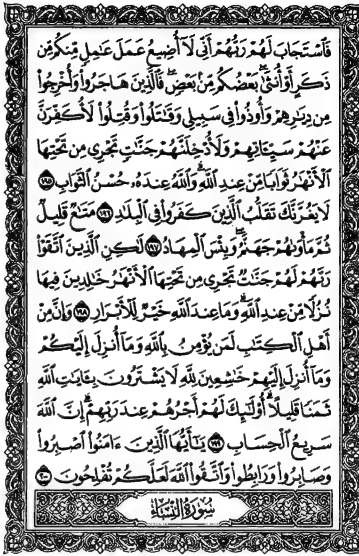 فَٱسْتَجَابَ لَهُمْ رَبُّهُمْ أَنِّى لَآ أُضِيعُ عَمَلَ عَٰمِلٍ مِّنكُم مِّن
ذَكَرٍ أَوْ أُنثَىٰ ۖ بَعْضُكُم مِّنۢ بَعْضٍ ۖ فَٱلَّذِينَ هَاجَرُوا۟ وَأُخْرِجُوا۟
مِن دِيَٰرِهِمْ وَأُوذُوا۟ فِى سَبِيلِى وَقَٰتَلُوا۟ وَقُتِلُوا۟ لَأُكَفِّرَنَّ
عَنْهُمْ سَيِّـَٔاتِهِمْ وَلَأُدْخِلَنَّهُمْ جَنَّٰتٍ تَجْرِى مِن تَحْتِهَا
ٱلْأَنْهَٰرُ ثَوَابًا مِّنْ عِندِ ٱللَّهِ ۗ وَٱللَّهُ عِندَهُۥ حُسْنُ ٱلثَّوَابِ ١٩٥
لَا يَغُرَّنَّكَ تَقَلُّبُ ٱلَّذِينَ كَفَرُوا۟ فِى ٱلْبِلَٰدِ ١٩٦ مَتَٰعٌ قَلِيلٌ
ثُمَّ مَأْوَىٰهُمْ جَهَنَّمُ ۚ وَبِئْسَ ٱلْمِهَادُ ١٩٧ لَٰكِنِ ٱلَّذِينَ ٱتَّقَوْا۟
رَبَّهُمْ لَهُمْ جَنَّٰتٌ تَجْرِى مِن تَحْتِهَا ٱلْأَنْهَٰرُ خَٰلِدِينَ فِيهَا
نُزُلًا مِّنْ عِندِ ٱللَّهِ ۗ وَمَا عِندَ ٱللَّهِ خَيْرٌ لِّلْأَبْرَارِ ١٩٨ وَإِنَّ مِنْ
أَهْلِ ٱلْكِتَٰبِ لَمَن يُؤْمِنُ بِٱللَّهِ وَمَآ أُنزِلَ إِلَيْكُمْ
وَمَآ أُنزِلَ إِلَيْهِمْ خَٰشِعِينَ لِلَّهِ لَا يَشْتَرُونَ بِـَٔايَٰتِ ٱللَّهِ
ثَمَنًا قَلِيلًا ۗ أُو۟لَٰٓئِكَ لَهُمْ أَجْرُهُمْ عِندَ رَبِّهِمْ ۗ إِنَّ ٱللَّهَ
سَرِيعُ ٱلْحِسَابِ ١٩٩ يَٰٓأَيُّهَا ٱلَّذِينَ ءَامَنُوا۟ ٱصْبِرُوا۟
وَصَابِرُوا۟ وَرَابِطُوا۟ وَٱتَّقُوا۟ ٱللَّهَ لَعَلَّكُمْ تُفْلِحُونَ ٢٠٠
سُورَةُ ٱلنِّسَاءِ